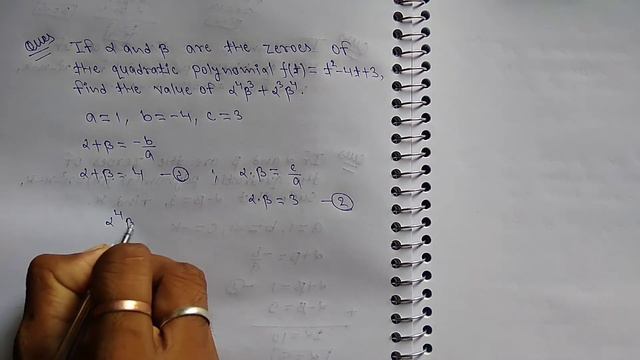 Ques If α and β are the zeroes of
the quadratic polynomial f(t) = t²-4t+3,
find the value of α⁴β³ + α³β⁴.
a=1, b=-4, c=3
α+β = -b/a
α+β = 4 - ① , α.β = c/a
α.β = 3 - ②
α⁴β